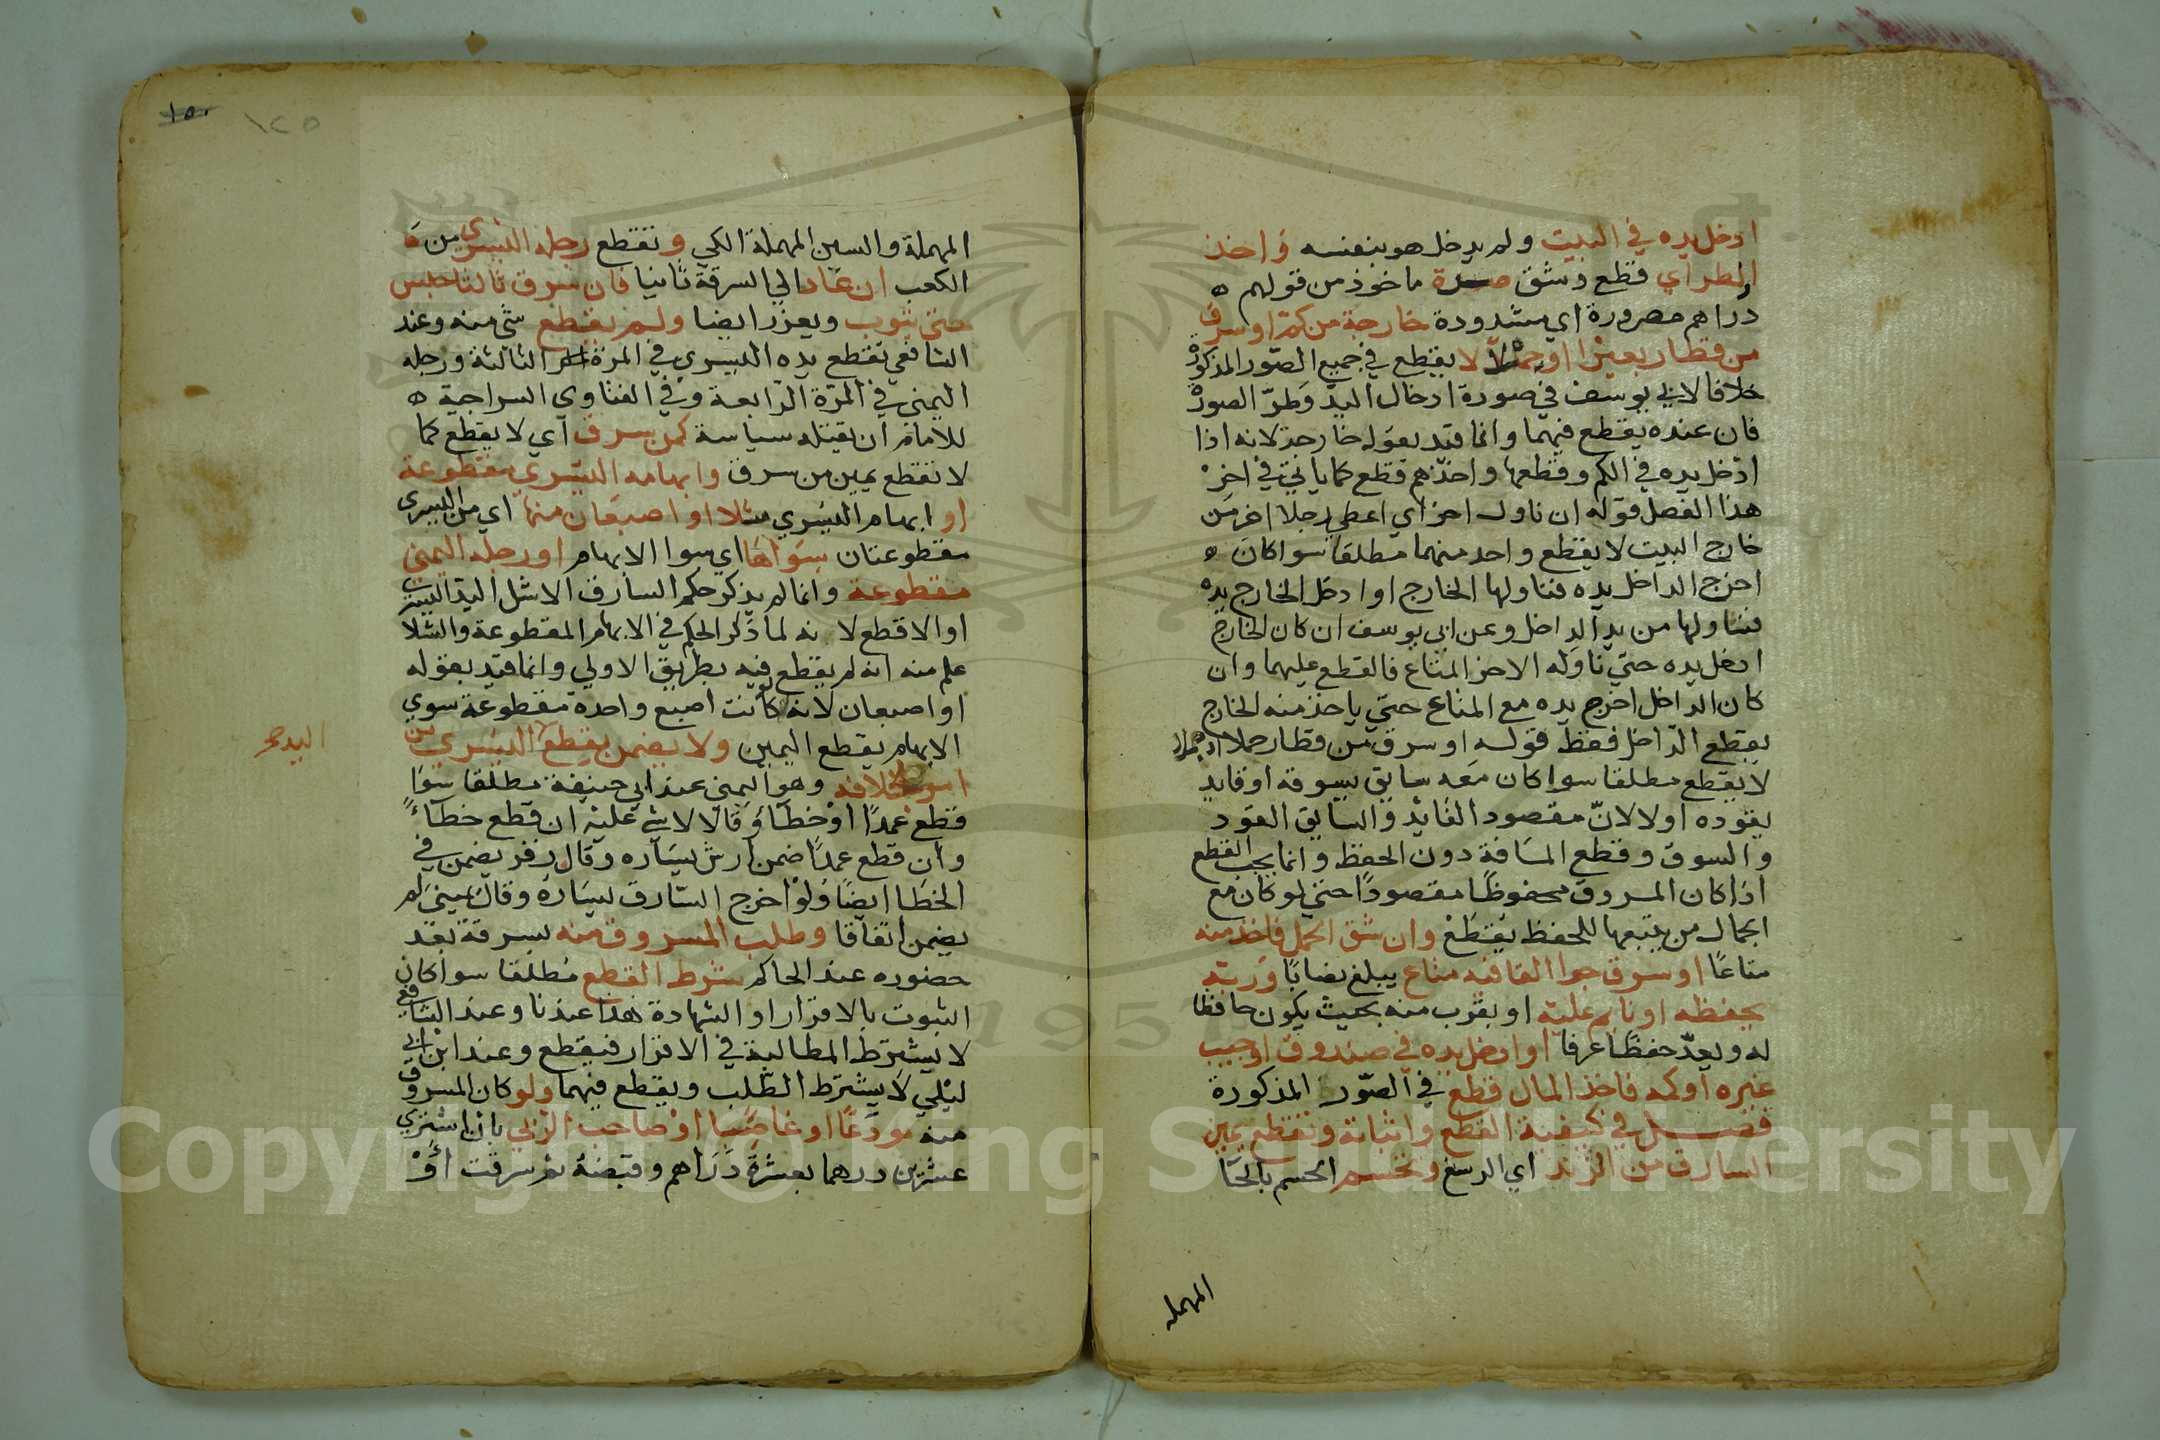 ادخل يده في البيت ولم يدخل هو بنفسه واخذ
المطر اي قطع وشق صرة ماخوذ من قولهم ه
دراهم مصرورة اي مشدودة خارجة من كم او سرق
من قطار بعيرا او حملا لا يقطع في جميع الصور المذكورة
خلافا لابي يوسف في صورة ادخال اليد وطر الصورة
فان عنده يقطع فيهما وانما قيد بقوله خارجة لانه اذا
ادخل يده في الكم وقطعها واخذهم قطع كما ياتي في اخر
هذا الفصل قوله ان ناول اخر اي اعطي رجلا اخر من
خارج البيت لا يقطع واحد منهما مطلقا سوا كان ه
اخرج الداخل يده فناولها الخارج او ادخل الخارج يده
فتناولها من يد الداخل وعن ابي يوسف ان كان الخارج
ادخل يده حتي ناوله الاخر المتاع فالقطع عليهما وان
كان الداخل اخرج يده مع المتاع حتي ياخذ منه الخارج
يقطع الداخل فقط قوله او سرق من قطار حملا
لا يقطع مطلقا سوا كان معه سايق يسوقه او قايد
يقوده او لا لانّ مقصود القايد والسايق القود
والسوق وقطع المسافة دون الحفظ وانما يجب القطع
اذا كان المسروق محفوظًا مقصودًا حتي لو كان مع
الجمال من يتبعها للحفظ يقطع وان شق الحمل فاخذ منه
متاعًا او سرق جوالقا فيه متاع يبلغ نصابًا وربه
يحفظه او نايم عليه او بقرب منه بحيث يكون حافظا
له ويعدّ حفظًا عرفا او ادخل يده في صندوق او جيب
غيره او كمه فاخذ المال قطع في الصّور المذكورة
فصل في كيفية القطع واثباته وتقطع يمين
السارق من الزند اي الرسغ وتحسم الحسم بالحا
المهمله
١٥٠
١٢٥
المهملة والسين المهملة الكي وتقطع رجله اليسري من
الكعب ان عاد الي السرقة ثانيا فان سرق ثالثا حبس
حتي يتوب ويعزر ايضا ولم يقطع شي منه وعند
الشافعي تقطع يده اليسري في المرة الثالثة ورجله
اليمني في المرة الرابعة وفي الفتاوي السراجية ه
للامام ان يقتله سياسة كمن سرق اي لا يقطع كما
لا تقطع يمين من سرق وابهامه اليسري مقطوعة
او ابهام اليسري شلا او اصبعان منها اي من اليسري
مقطوعتان سواها اي سوا الابهام او رجله اليمني
مقطوعة وانما لم يذكر حكم السارق الاشل اليد اليسري
او الاقطع لانه لما ذكر الحكم في الابهام المقطوعة والشلا
علم منه انه لم يقطع فيه بطريق الاولي وانما قيد بقوله
او اصبعان لانه لو كانت اصبع واحدة مقطوعة سوي
الابهام يقطع اليمين ولا يضمن بقطع اليسري من
امر بخلافه وهو اليمني عند ابي حنيفة مطلقا سوا
اليد صح
قطع عمدًا او خطأ وقالا لا شي عليه ان قطع خطاءً
وان قطع عمدًا ضمن ارش يساره وقال زفر يضمن في
الخطا ايضًا ولو اخرج السّارق يساره وقال يميني لم
يضمن اتفاقا وطلب المسروق منه بسرقة بعد
حضوره عند الحاكم شرط القطع مطلقا سوا كان
الثبوت بالاقرار او الشهادة هذا عندنا وعند الشافعي
لا يشترط المطالبة في الاقرار فيقطع وعند ابن ابي
ليلي لا يشترط الطّلب ويقطع فيهما ولو كان المسروق
منه مودعًا او غاصبا او صاحب الربي بان اشتري
عشرين درهما بعشرة دراهم وقبضه ثم سرقت